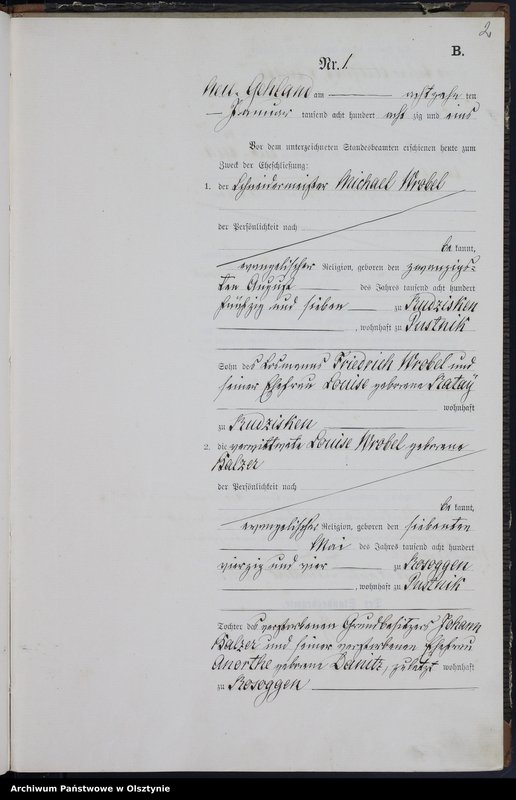 2
B.
Nr. 1
Neu-Gehland am achtzehn ten
Januar tausend acht hundert acht zig und eins
Vor dem unterzeichneten Standesbeamten erschienen heute zum
Zweck der Eheschließung:
1. der Schneidermeister Michael Wrobel
der Persönlichkeit nach
be kannt,
evangelischer Religion, geboren den zwanzigs-
ten August des Jahres tausend acht hundert
fünfzig und sieben zu Rudzisken
, wohnhaft zu Pustnik
Sohn des Losmanns Friedrich Wrobel und
seiner Ehefrau Louise geborene Katay
wohnhaft
zu Rudzisken
2. die verwittwete Louise Wrobel geborene
Kalzer
der Persönlichkeit nach
be kannt,
evangelischer Religion, geboren den siebenten
Mai des Jahres tausend acht hundert
vierzig und vier zu Rosoggen
, wohnhaft zu Pustnik
Tochter des verstorbenen Grundbesitzers Johann
Kalzer und seiner verstorbenen Ehefrau
Anorthe geborene Danitz, zuletzt wohnhaft
zu Rosoggen
Archiwum Państwowe w Olsztynie